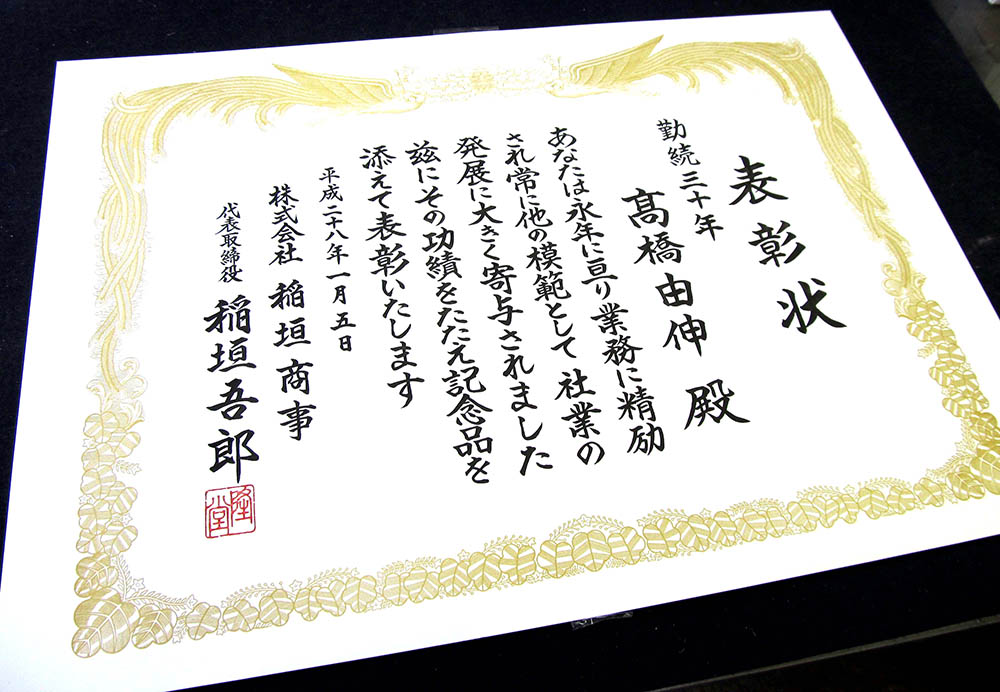 表彰状
勤続三十年
髙橋由伸 殿
あなたは永年に亘り業務に精励
され常に他の模範として社業の
発展に大きく寄与されました
茲にその功績をたたえ記念品を
添えて表彰いたします
平成二十八年一月五日
株式会社 稲垣商事
代表取締役 稲垣吾郎
隆堂